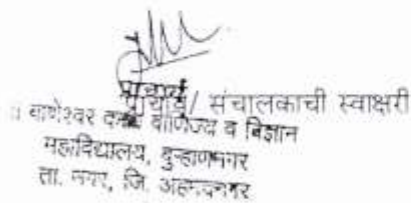 प्राचार्य/ संचालकाची स्वाक्षरी
बाणेश्वर कला वाणिज्य व विज्ञान
महाविद्यालय, बुऱ्हाणनगर
ता. नगर, जि. अहमदनगर